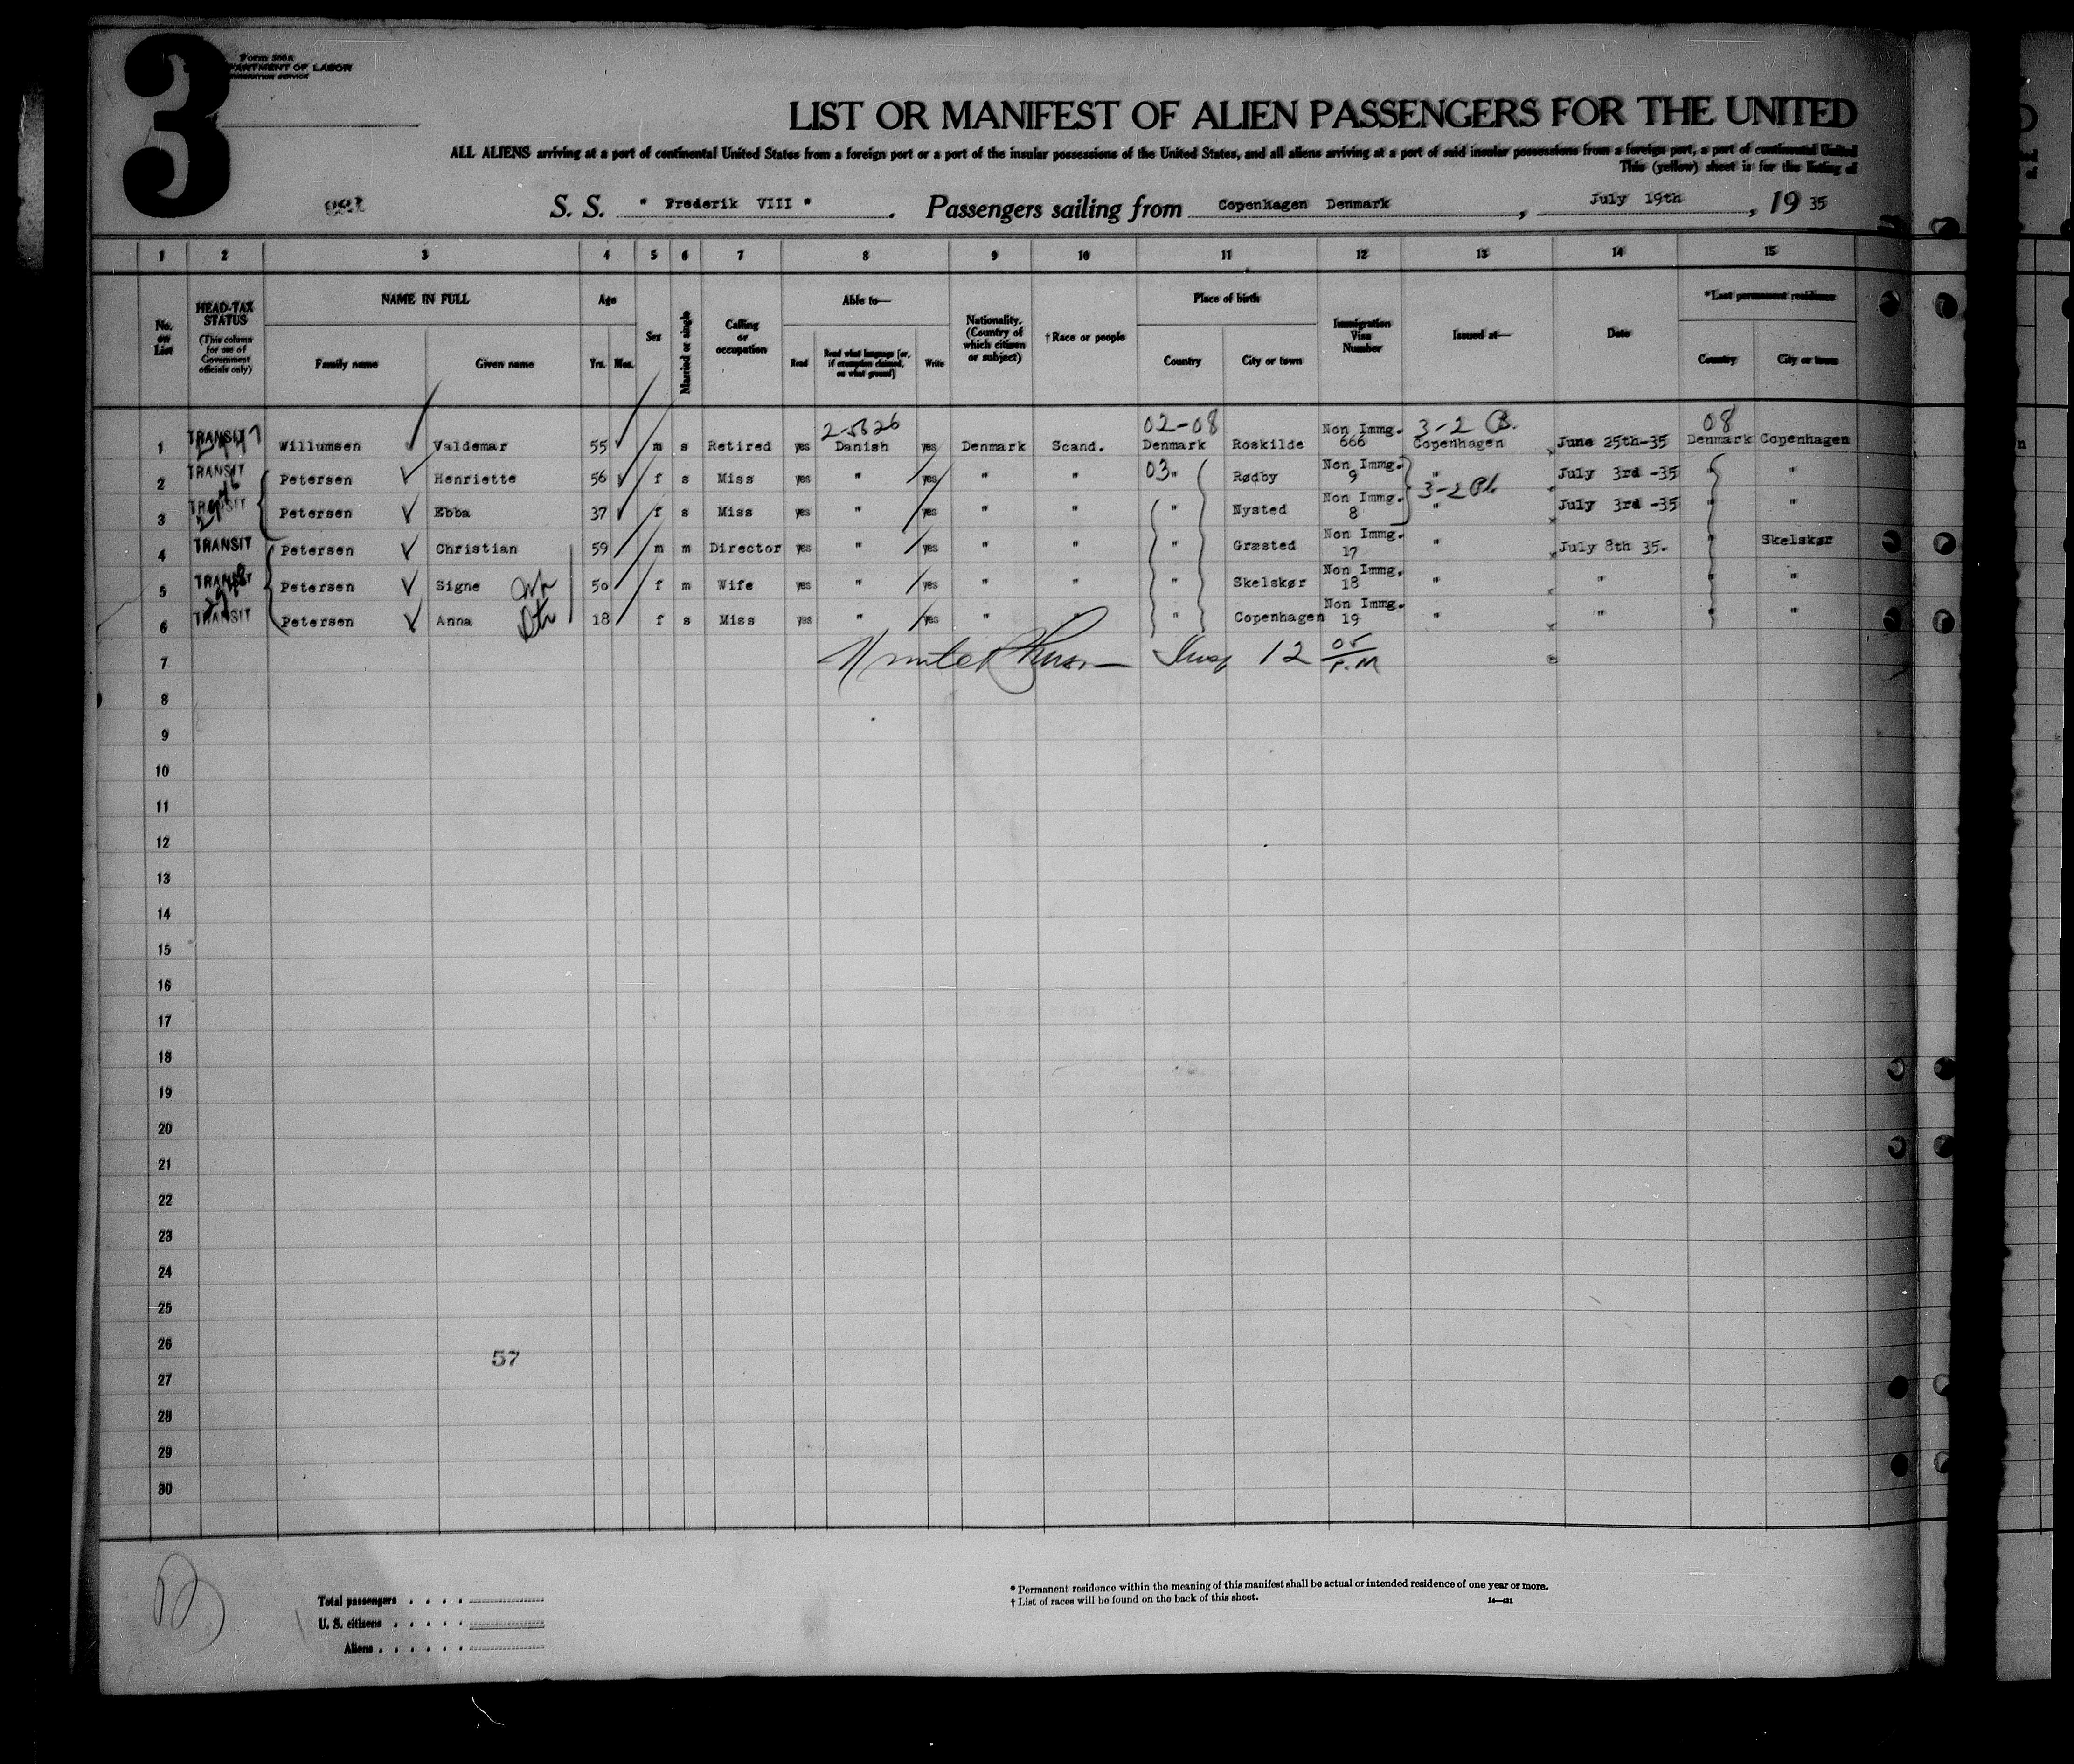 3
Form 500A
DEPARTMENT OF LABOR
IMMIGRATION SERVICE
LIST OR MANIFEST OF ALIEN PASSENGERS FOR THE UNITED
ALL ALIENS arriving at a port of continental United States from a foreign port or a port of the insular possessions of the United States, and all aliens arriving at a port of said insular possessions from a foreign port, a port of continental United
This (yellow) sheet is for the listing of
S. S. " Frederik VIII " . Passengers sailing from Copenhagen Denmark , July 19th , 19 35
1 2 3 4 5 6 7 8 9 10 11 12 13 14 15
No. on List
HEAD-TAX STATUS
(This column for use of Government officials only)
NAME IN FULL
Family name Given name
Age
Yrs. Mos.
Sex
Married or single
Calling or occupation
Able to—
Read Read what language [or, if exemption claimed, on what ground] Write
Nationality. (Country of which citizen or subject)
† Race or people
Place of birth
Country City or town
Immigration Visa Number
Issued at—
Date
*Last permanent residence
Country City or town
2-5626 02-08 3-2 B. 08
1 TRANSIT Willumsen Valdemar 55 m s Retired yes Danish yes Denmark Scand. Denmark Roskilde Non Immg. 666 Copenhagen June 25th-35 Denmark Copenhagen
2 TRANSIT Petersen Henriette 56 f s Miss yes " yes " " 03 " Rødby Non Immg. 9 " July 3rd -35 " "
3-2
3 TRANSIT Petersen Ebba 37 f s Miss yes " yes " " " Nysted Non Immg. 8 " July 3rd -35 " "
4 TRANSIT Petersen Christian 59 m m Director yes " yes " " " Græsted Non Immg. 17 " July 8th 35. " Skelskør
5 TRANSIT Petersen Signe 50 f m Wife yes " yes " " " Skelskør Non Immg. 18 " " " "
6 TRANSIT Petersen Anna 18 f s Miss yes " yes " " " Copenhagen Non Immg. 19 " " " "
7 12 05 P.M
8
9
10
11
12
13
14
15
16
17
18
19
20
21
22
23
24
25
26
57
27
28
29
30
Total passengers . . . .
U. S. citizens . . . . .
Aliens . . . . . .
* Permanent residence within the meaning of this manifest shall be actual or intended residence of one year or more.
† List of races will be found on the back of this sheet.